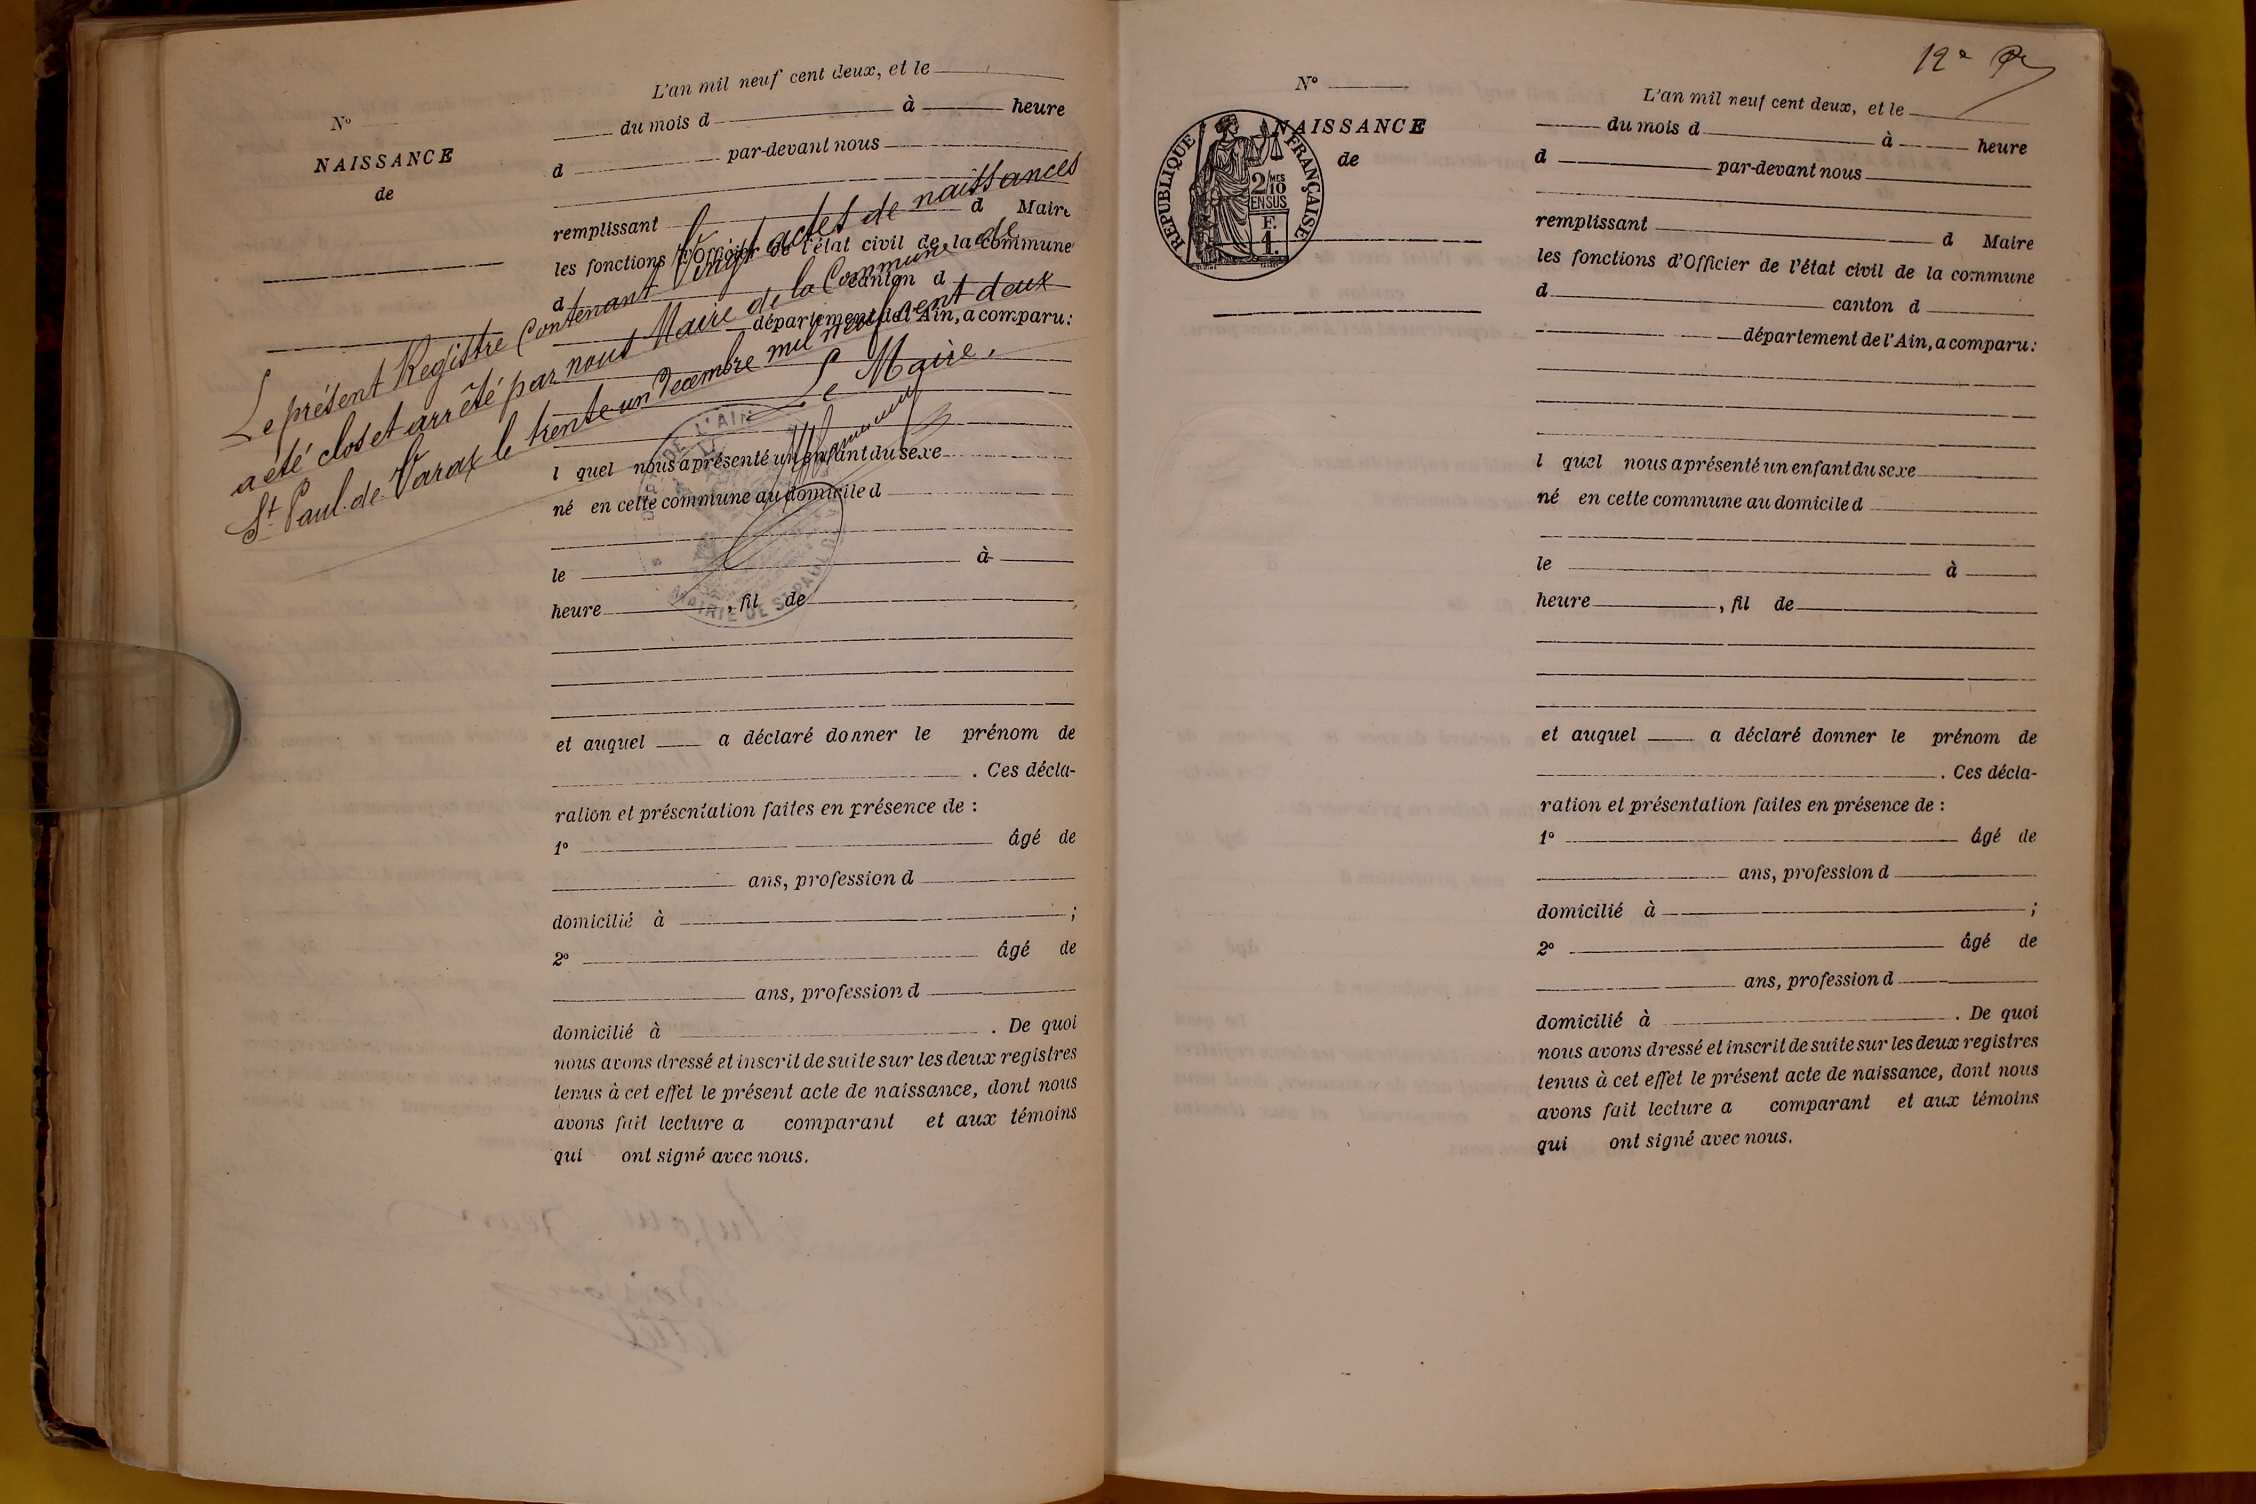 L'an mil neuf cent deux, et le
N°
du mois d à heure
NAISSANCE
d par-devant nous
de
remplissant d Maire
les fonctions d'Officier de l'état civil de la commune
d canton d
département de l'Ain, a comparu:
Le présent Registre Contenant Vingt actes de naissances
a été clos et arrêté par nous Maire de la Commune de
St Paul-de Varax le trente un Décembre mil neuf cent deux
Le Maire.
DE L'AIN
MAIRIE DE ST PAUL
l quel nous a présenté un enfant du sexe
né en cette commune au domicile d
le à
heure , fil de
et auquel a déclaré donner le prénom de
. Ces décla-
ration et présentation faites en présence de :
1° âgé de
ans, profession d
domicilié à ;
2° âgé de
ans, profession d
domicilié à . De quoi
nous avons dressé et inscrit de suite sur les deux registres
tenus à cet effet le présent acte de naissance, dont nous
avons fait lecture a comparant et aux témoins
qui ont signé avec nous.
12e
N°
L'an mil neuf cent deux, et le
NAISSANCE
du mois d à heure
de
d par-devant nous
RÉPUBLIQUE FRANÇAISE
2/MES
10
EN SUS
F.
1.
remplissant d Maire
les fonctions d'Officier de l'état civil de la commune
d canton d
département de l'Ain, a comparu:
l quel nous a présenté un enfant du sexe
né en cette commune au domicile d
le à
heure , fil de
et auquel a déclaré donner le prénom de
. Ces décla-
ration et présentation faites en présence de :
1° âgé de
ans, profession d
domicilié à ;
2° âgé de
ans, profession d
domicilié à . De quoi
nous avons dressé et inscrit de suite sur les deux registres
tenus à cet effet le présent acte de naissance, dont nous
avons fait lecture a comparant et aux témoins
qui ont signé avec nous.